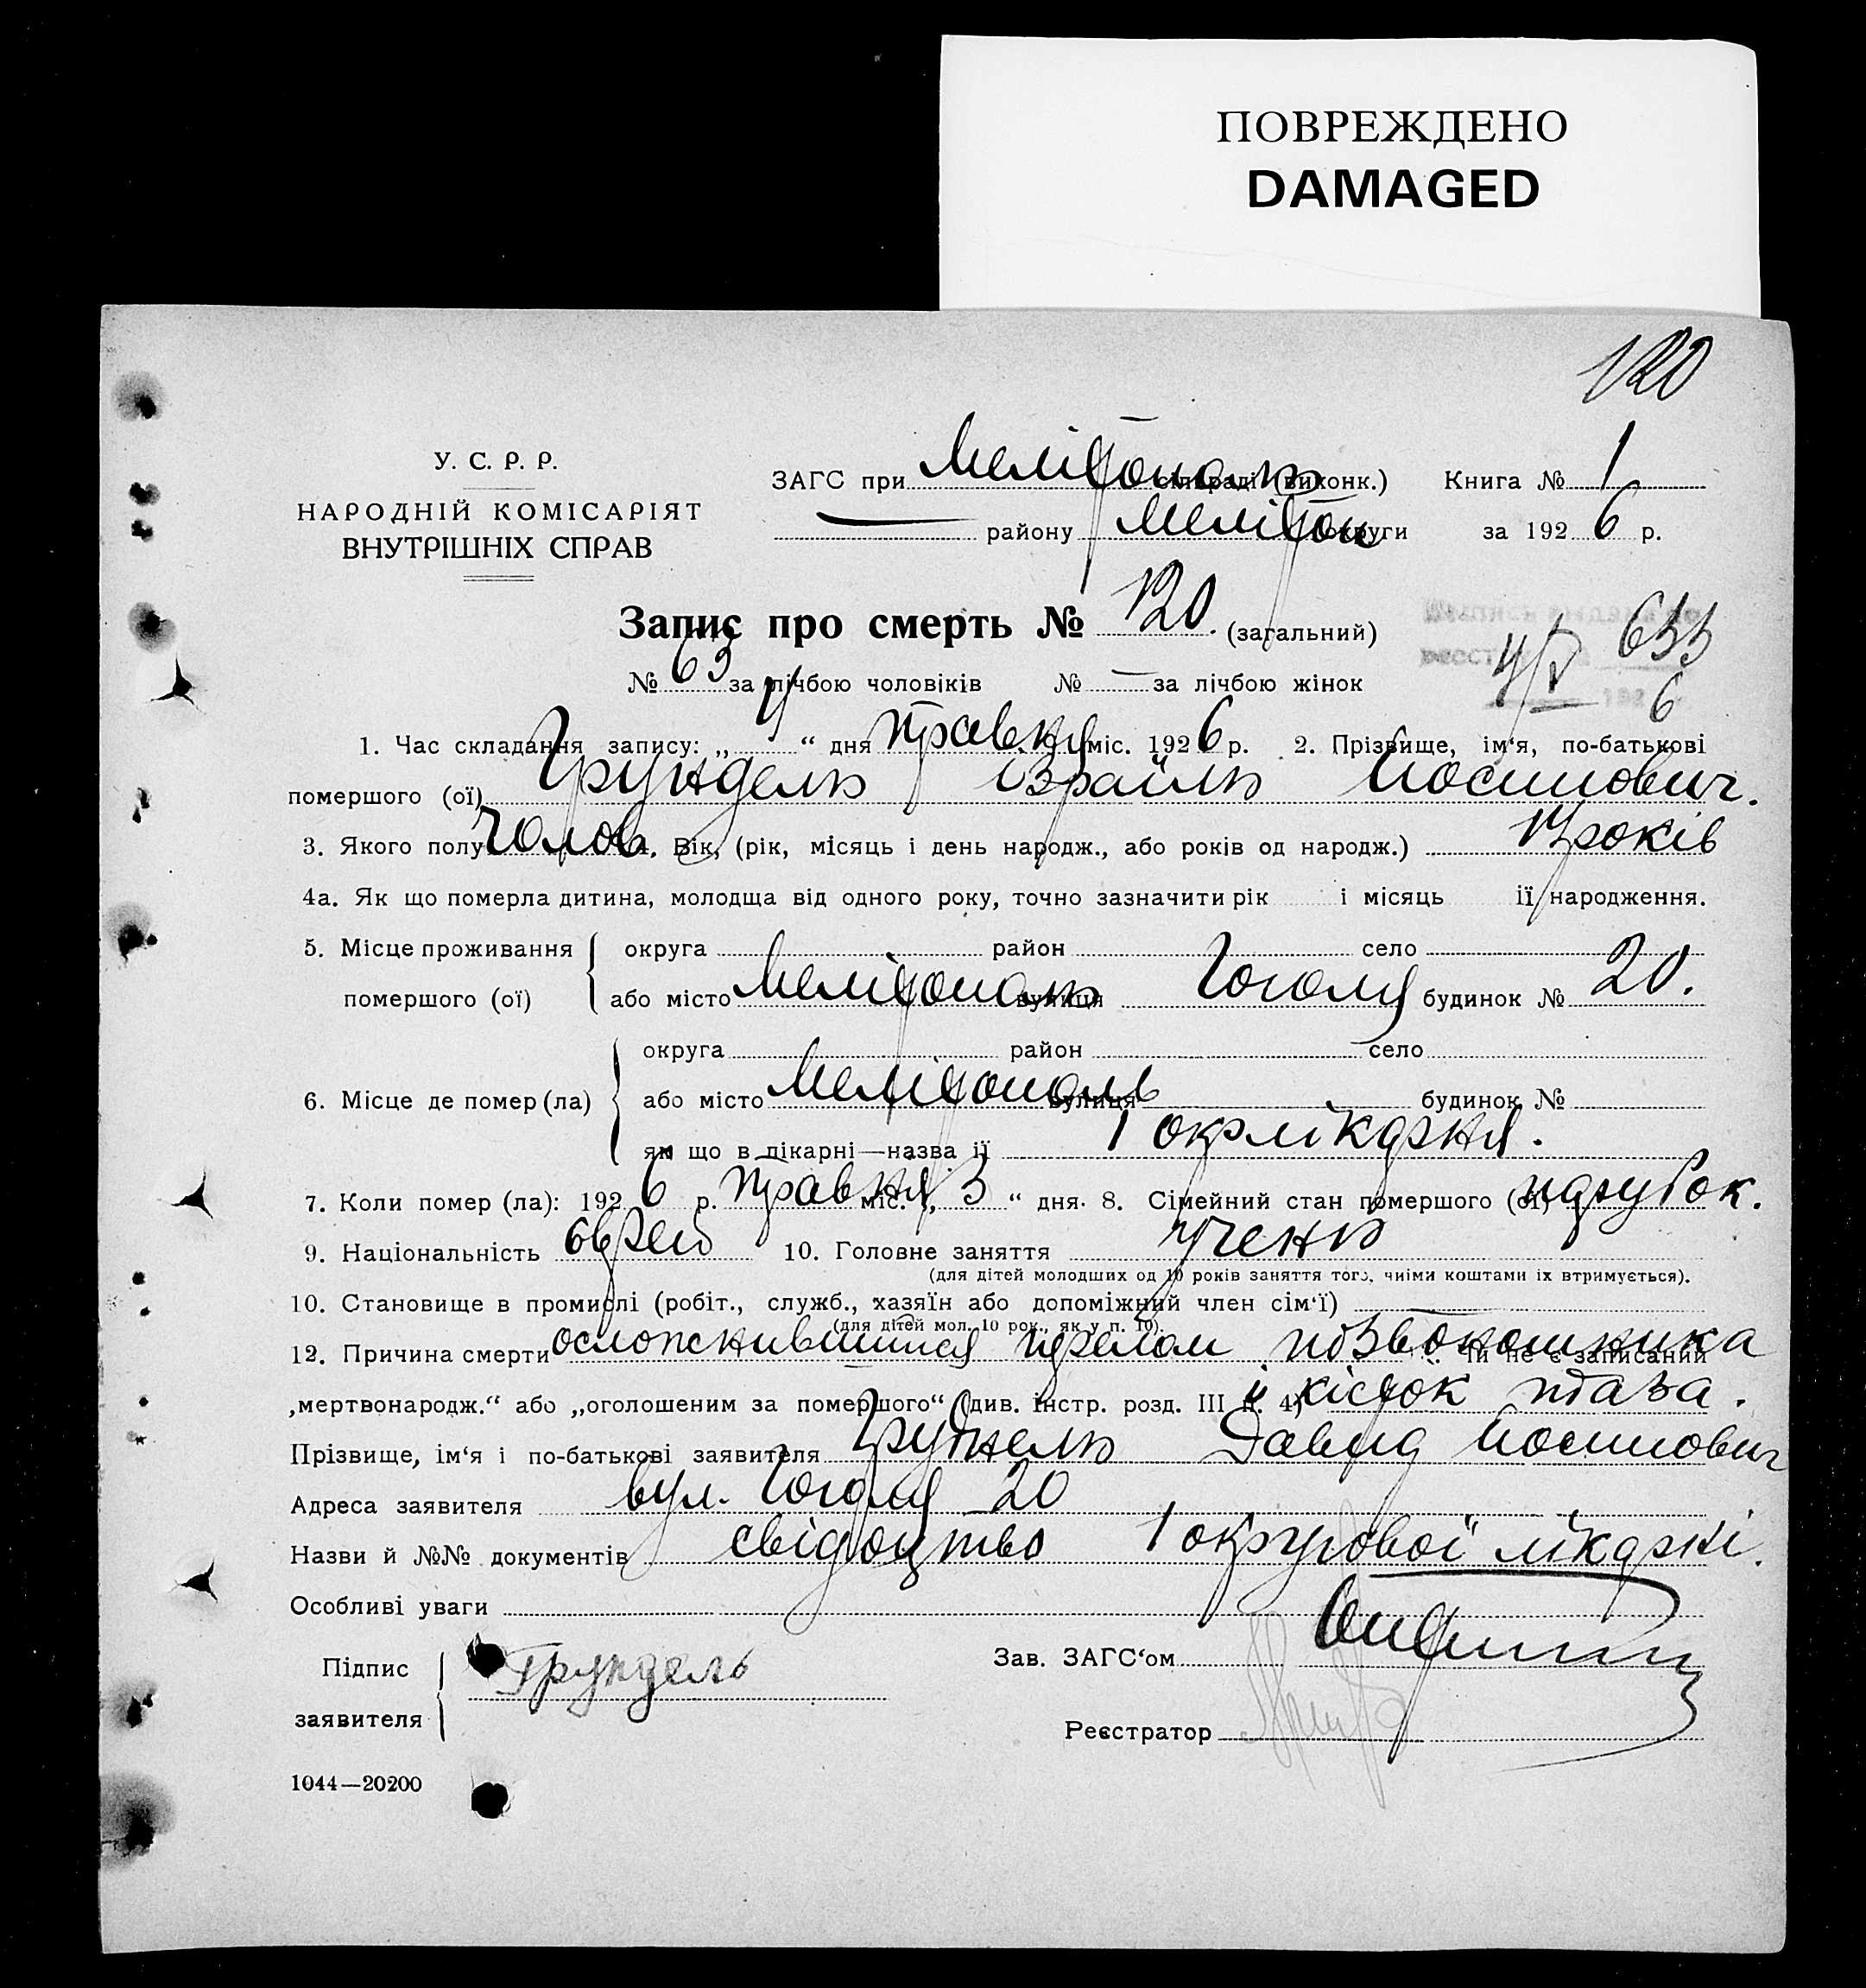 ПОВРЕЖДЕНО
DAMAGED
120
У. С. Р. Р.
НАРОДНІЙ КОМІСАРІЯТ
ВНУТРІШНІХ СПРАВ
ЗАГС при Мелітополь сільраді (виконк.) Книга № 1
— району Мелітоп округи за 1926 р.
Запис про смерть № 120. (загальний)
№ 63 за лічбою чоловіків № — за лічбою жінок
4/V 633
192 6
1. Час складання запису: „4“ дня травня міс. 1926 р. 2. Прізвище, ім‘я, по-батькові
помершого (ої) Грундель Ізраїль Йосипович.
3. Якого полу чолов. 4. Вік, (рік, місяць і день народж., або років од народж.) років
4а. Як що померла дитина, молодща від одного року, точно зазначити рік і місяць її народження.
5. Місце проживання округа район село
помершого (ої) або місто Мелітополь вулиця Гоголя будинок № 20.
округа район село
6. Місце де помер (ла) або місто Мелітополь вулиця будинок №
як що в лікарні—назва її 1 окрлікарня.
7. Коли помер (ла): 1926 р. травня міс. „3“ дня. 8. Сімейний стан помершого (ої) парубок.
9. Національність єврей 10. Головне заняття учень
(для дітей молодших од 10 років заняття того, чиіми коштами іх втримується).
10. Становище в промислі (робіт., служб., хазяїн або допоміжний член сім‘ї)
(для дітей мол. 10 рок., як у п. 10).
12. Причина смерти перелом Чи не є записаний
„мертвонародж.“ або „оголошеним за помершого“ (див. інстр. розд. III п. 4) й кісток таза.
Прізвище, ім‘я і по-батькові заявителя Грундель Давид Йосипович
Адреса заявителя вул. Гоголя 20
Назви й №№ документів свідоцтво 1 округової лікарні.
Особливі уваги
Підпис Грундель
заявителя
Зав. ЗАГС‘ом
Реєстратор
1044—20200